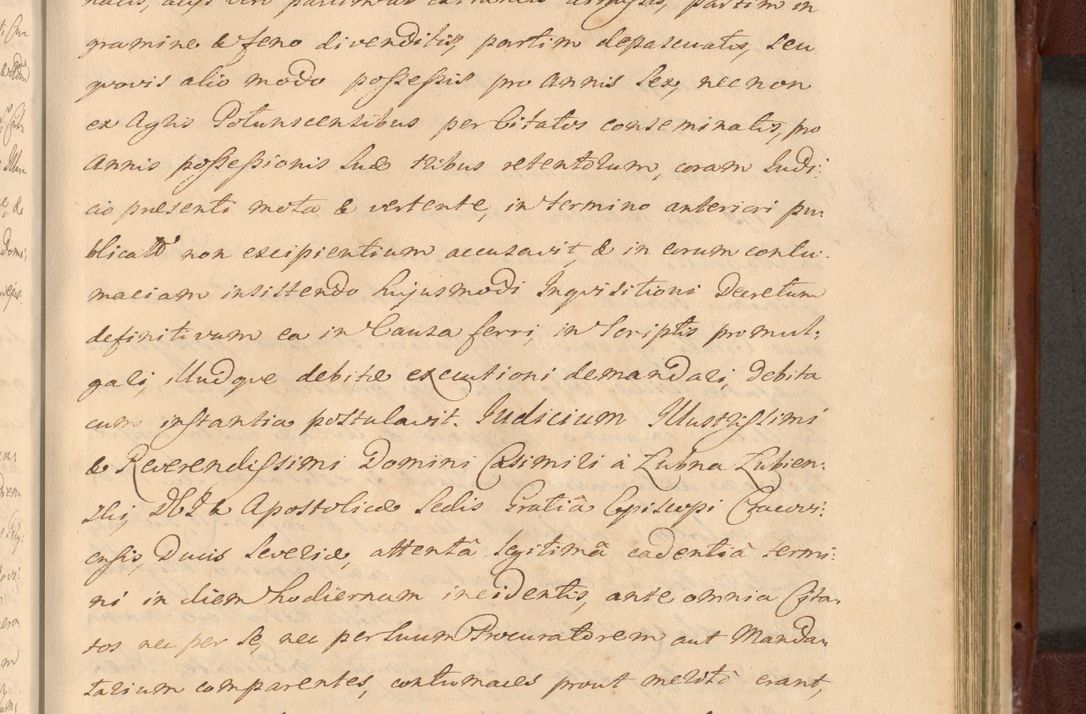 gramine & feno divenditis, partim depascuatis, seu
quovis alio modo possessis pro Annis Sex, nec non
ex Agris Potunscensibus per Citatos conseminatis, pro
Annis possessionis suæ tribus retentorum, coram Judi:
cio præsenti mota & vertente, in termino anteriori pu:
blicatæ non excipientium accusavit, & in eorum contu:
maciam insistendo hujusmodi Inquisitioni Decretum
definitivum ea in Causa ferri, in Scriptis promul:
gari, illudque debitæ executioni demandari, debita
cum instantia postulavit. Judicium Illustrissimi
& Reverendissimi Domini Casimiri à Lubna Lubien:
skij D&I & Apostolicæ Sedis Gratiâ Episcopi Cracovi:
ensis, Ducis Severiæ, attentâ legitimâ cadentiâ termi:
ni in diem hodiernam incidentis, ante omnia Cita:
tos nec per se, nec per suum Procuratorem aut Manda:
tarium comparentes, contumaces prout meritâ erant,